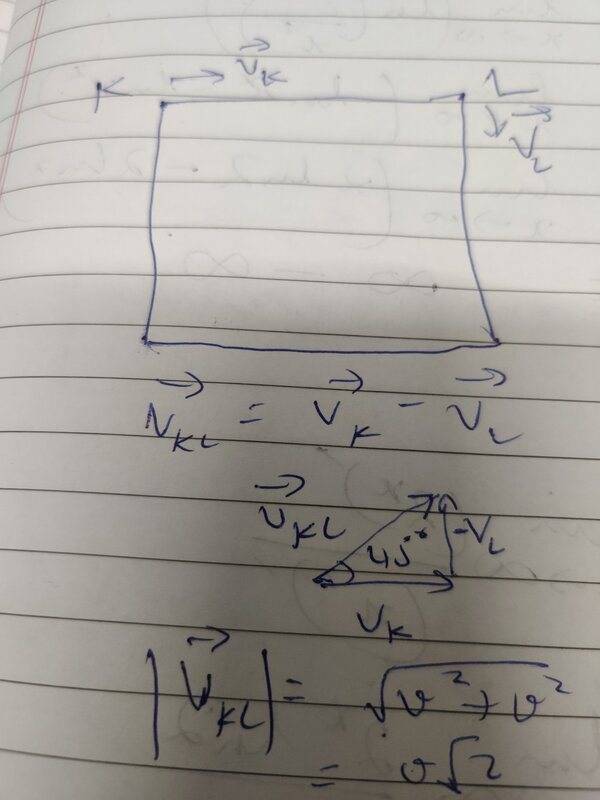 K → v⃗_K L
↓ v⃗_L
v⃗_KL = v⃗_K - v⃗_L
v⃗_KL 45° -v_L
v_K
|v⃗_KL| = √(v² + v²)
= v√2